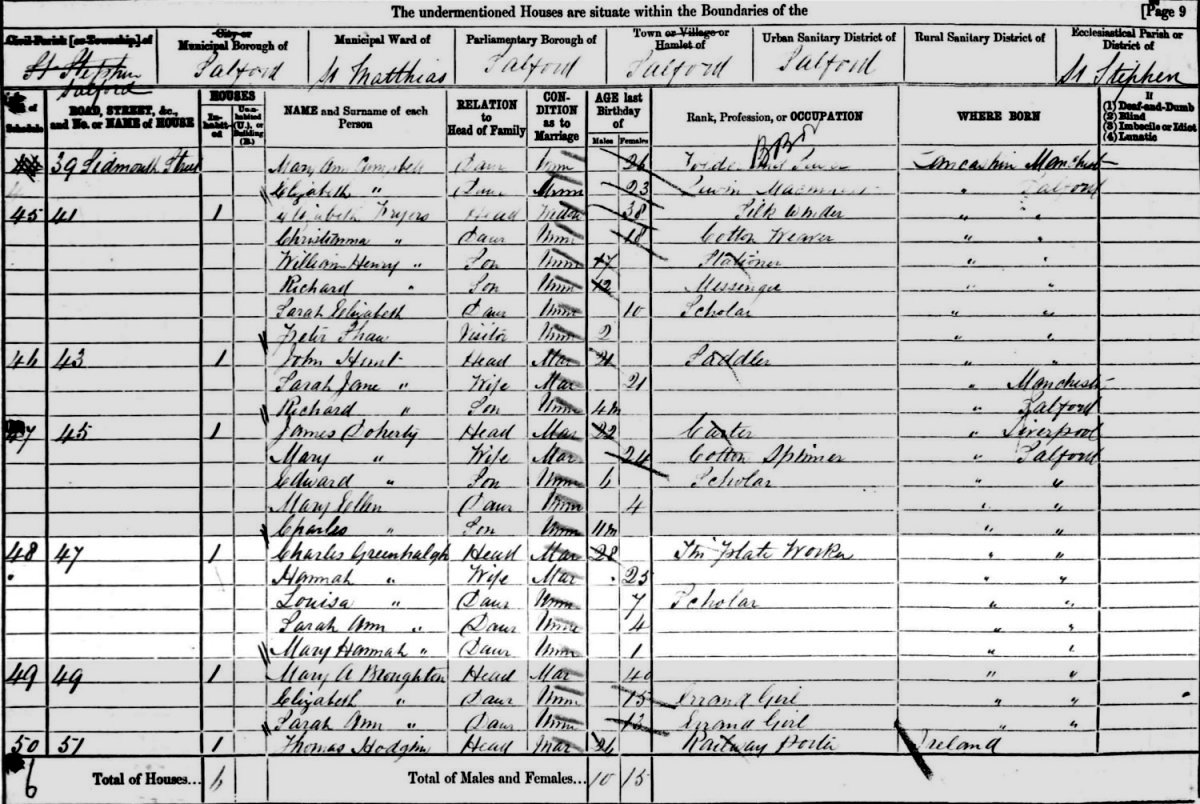 The undermentioned Houses are situate within the Boundaries of the [Page 9
Civil Parish [or Township] of City or Municipal Borough of Municipal Ward of Parliamentary Borough of Town or Village or Hamlet of Urban Sanitary District of Rural Sanitary District of Ecclesiastical Parish or District of
St Stephen Salford St Matthias Salford Salford Salford St Stephen
Salford
No. of Schedule ROAD, STREET, &c., and No. or NAME of HOUSE HOUSES Inhabited Uninhabited (U.), or Building (B.) NAME and Surname of each Person RELATION to Head of Family CONDITION as to Marriage AGE last Birthday of Males Females Rank, Profession, or OCCUPATION WHERE BORN If (1) Deaf-and-Dumb (2) Blind (3) Imbecile or Idiot (4) Lunatic
39 Sidmouth Street Mary Ann Campbell Daur Unm 26 Lancashire Manchest
Elizabeth " Daur Unm 23 " Salford
45 41 1 Elizabeth Fryers Head Widow 38 Silk Winder " "
Christianna " Daur Unm 18 Cotton Weaver " "
William Henry " Son Unm 17 Stationer " "
Richard " Son Unm 12 Messenger " "
Sarah Elizabeth Daur Unm 10 Scholar " "
Peter Shaw Visitor Unm 2 " "
46 43 1 John Hunt Head Mar 21 Saddler " "
Sarah Jane " Wife Mar 21 " Manchest
Richard " Son Unm 4m " Salford
47 45 1 James Doherty Head Mar 22 Carter " Liverpool
Mary " Wife Mar 24 Cotton Spinner " Salford
Edward " Son Unm 6 Scholar " "
Mary Ellen Daur Unm 4 " "
Charles " Son Unm 11m " "
48 47 1 Charles Greenhalgh Head Mar 28 Tin Plate Worker " "
Hannah " Wife Mar 25 " "
Louisa " Daur Unm 7 Scholar " "
Sarah Ann " Daur Unm 4 " "
Mary Hannah " Daur Unm 1 " "
49 49 1 Mary A Broughton Head Mar 40 " "
Elizabeth " Daur Unm 15 Errand Girl " "
Sarah Ann " Daur Unm 13 Errand Girl " "
50 51 1 Thomas Hodgin Head Mar 26 Railway Porter Ireland
6 Total of Houses... 6 Total of Males and Females... 10 15